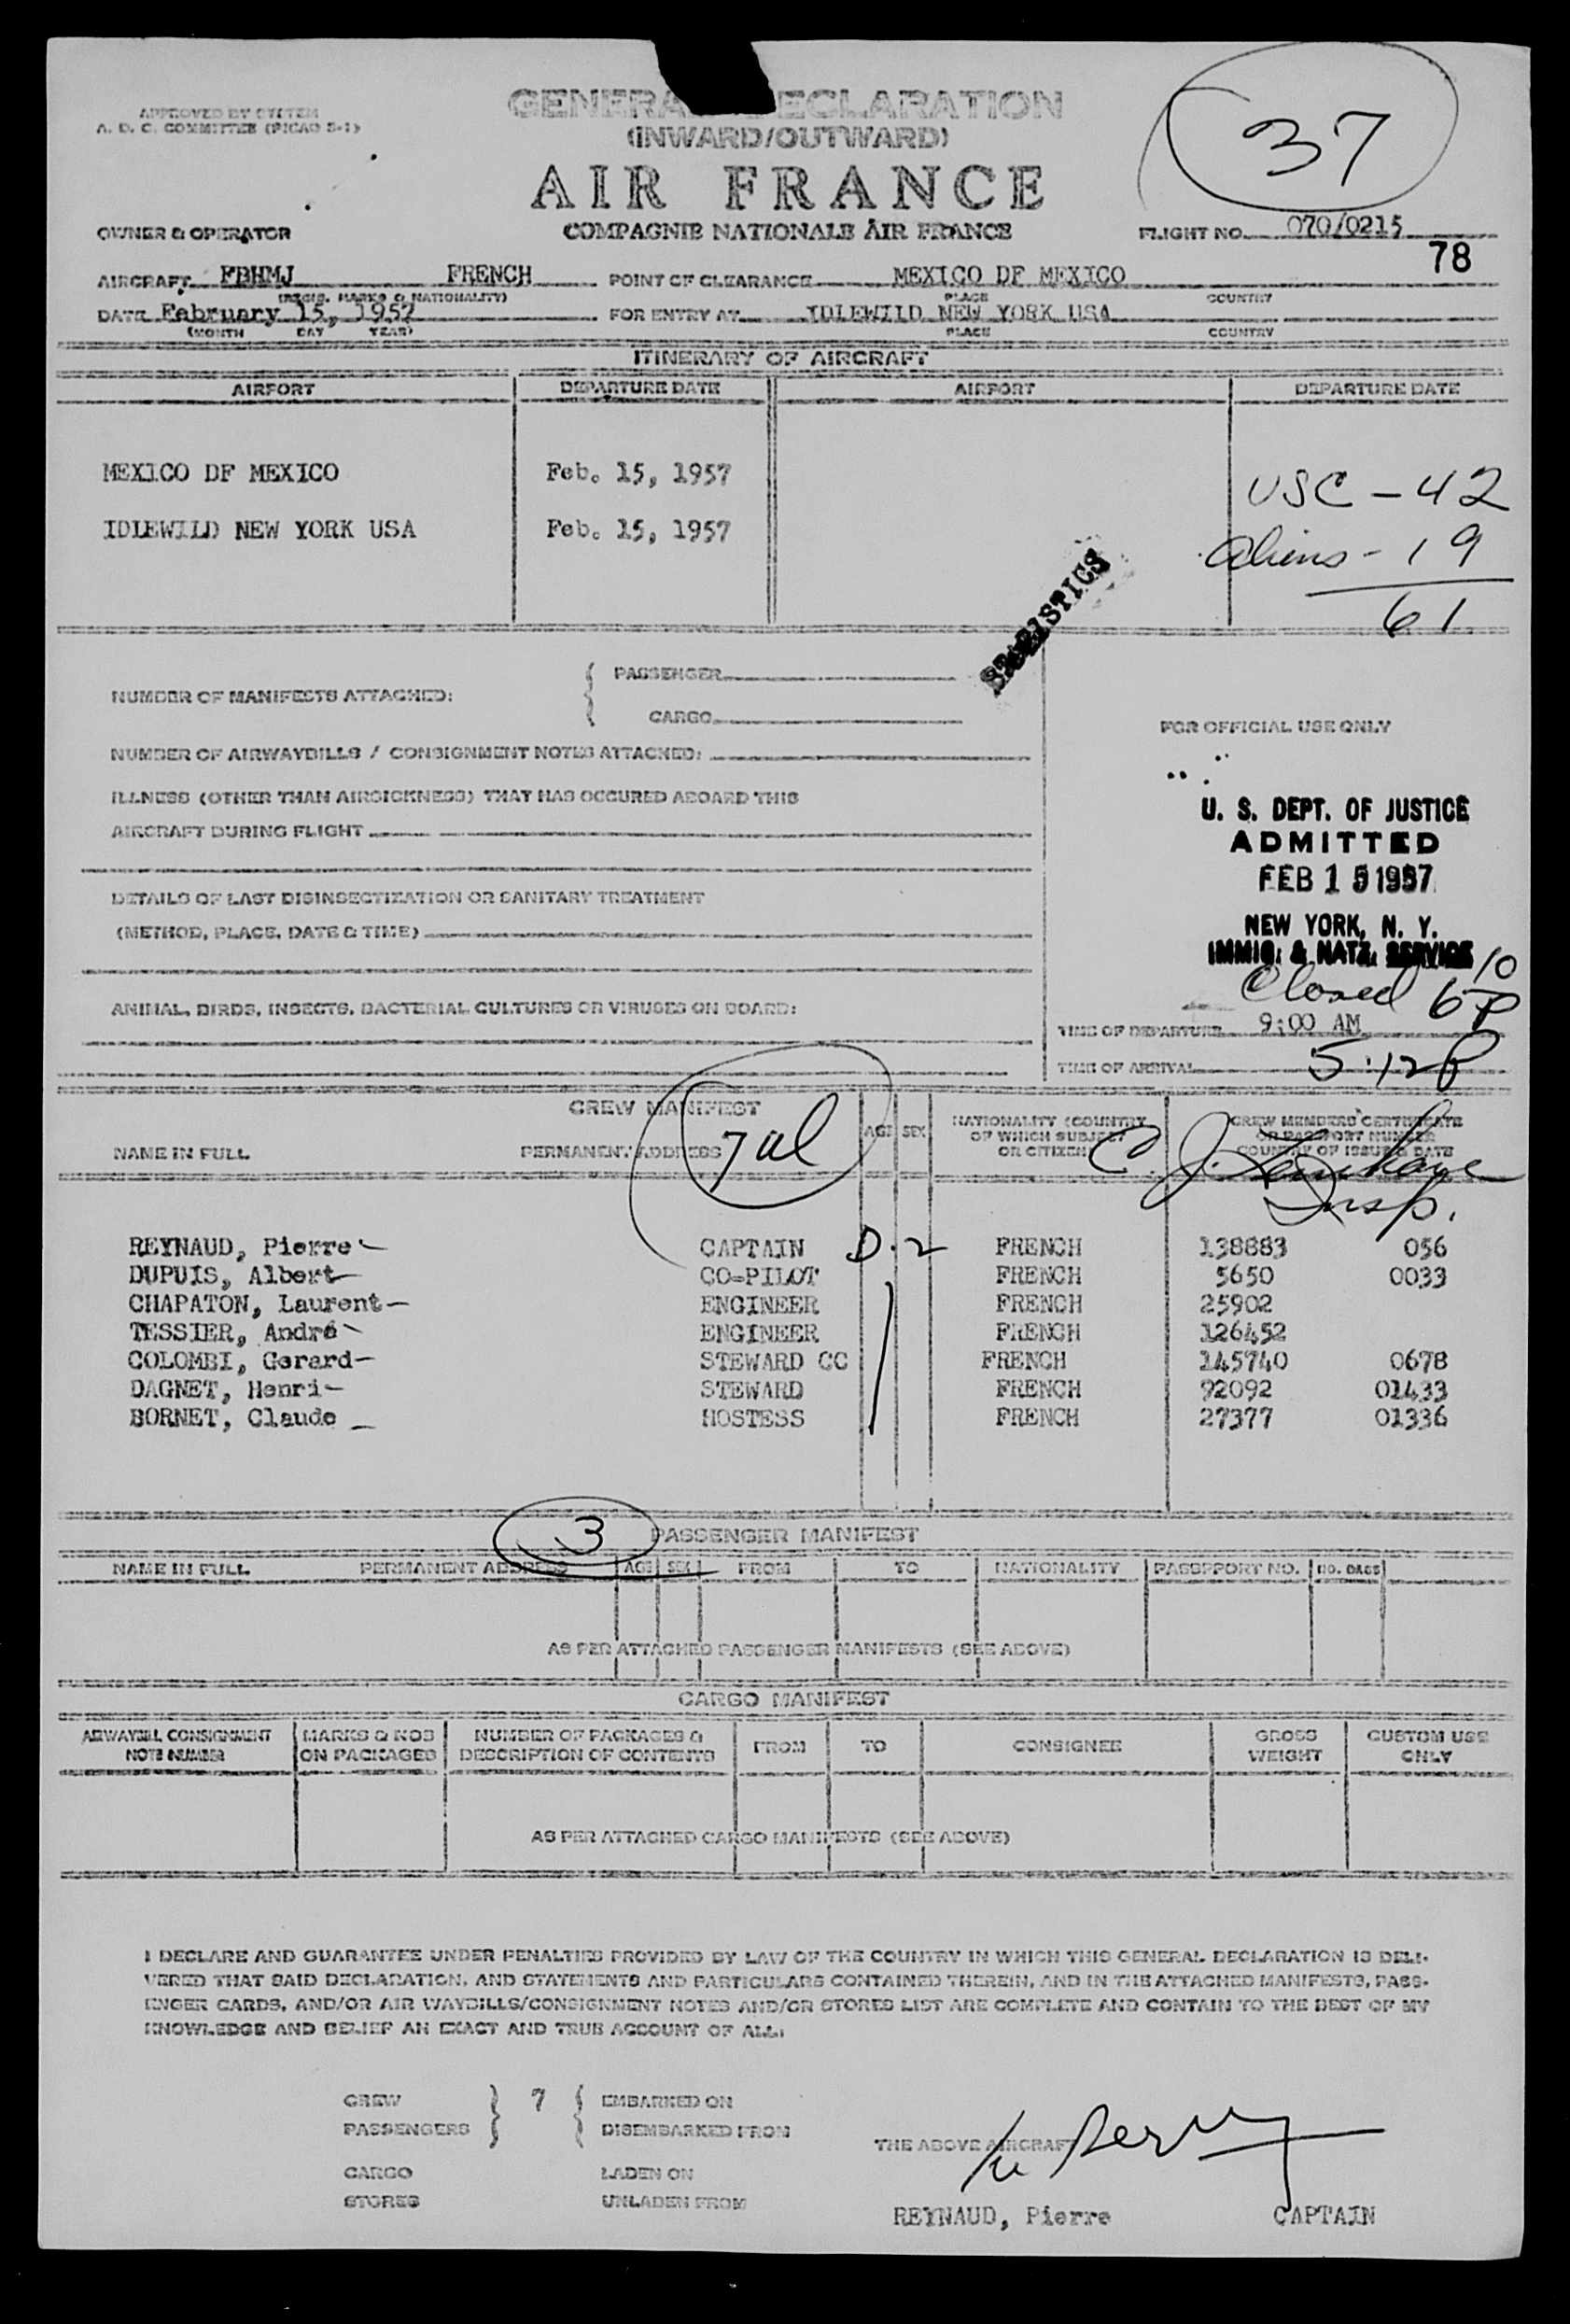 APPROVED BY SYSTEM
A. D. C. COMMITTEE (PICAO 5-1)
GENERA ECLARATION
(INWARD/OUTWARD)
AIR FRANCE
COMPAGNIE NATIONALE AIR FRANCE
37
OWNER & OPERATOR
FLIGHT NO. 070/0215
78
AIRCRAFT FBHMJ FRENCH POINT OF CLEARANCE MEXICO DF MEXICO
(REGIS. MARKS & NATIONALITY) PLACE COUNTRY
DATE February 15, 1957 FOR ENTRY AT IDLEWILD NEW YORK USA
(MONTH DAY YEAR) PLACE COUNTRY
ITINERARY OF AIRCRAFT
AIRPORT DEPARTURE DATE AIRPORT DEPARTURE DATE
MEXICO DF MEXICO Feb. 15, 1957
IDLEWILD NEW YORK USA Feb. 15, 1957
USC - 42
Aliens - 19
61
STATISTICS
NUMBER OF MANIFESTS ATTACHED: PASSENGER
CARGO
NUMBER OF AIRWAYBILLS / CONSIGNMENT NOTES ATTACHED:
ILLNESS (OTHER THAN AIRSICKNESS) THAT HAS OCCURED ABOARD THIS
AIRCRAFT DURING FLIGHT
DETAILS OF LAST DISINSECTIZATION OR SANITARY TREATMENT
(METHOD, PLACE, DATE & TIME)
ANIMAL, BIRDS, INSECTS, BACTERIAL CULTURES OR VIRUSES ON BOARD:
FOR OFFICIAL USE ONLY
U. S. DEPT. OF JUSTICE
ADMITTED
FEB 15 1957
NEW YORK, N. Y.
IMMIG. & NATZ. SERVICE
Closed 6 10 P
TIME OF DEPARTURE 9:00 AM
TIME OF ARRIVAL 5:12 P
CREW MANIFEST
NAME IN FULL PERMANENT ADDRESS AGE SEX
NATIONALITY (COUNTRY
OF WHICH SUBJECT
OR CITIZEN)
CREW MEMBERS' CERTIFICATE
OR PASSPORT NUMBER
COUNTRY OF ISSUE & DATE
C. J.
Insp.
REYNAUD, Pierre CAPTAIN D-2 FRENCH 138883 056
DUPUIS, Albert CO-PILOT FRENCH 5650 0033
CHAPATON, Laurent ENGINEER FRENCH 25902
TESSIER, André ENGINEER FRENCH 126452
COLOMBI, Gerard STEWARD CC FRENCH 145740 0678
DAGNET, Henri STEWARD FRENCH 92092 01433
BORNET, Claude HOSTESS FRENCH 27377 01336
3
PASSENGER MANIFEST
NAME IN FULL PERMANENT ADDRESS AGE SEX FROM TO NATIONALITY PASSPPORT NO. NO. BAGS
AS PER ATTACHED PASSENGER MANIFESTS (SEE ABOVE)
CARGO MANIFEST
AIRWAYBILL CONSIGNMENT NOTE NUMBER MARKS & NOS ON PACKAGES NUMBER OF PACKAGES & DESCRIPTION OF CONTENTS FROM TO CONSIGNEE GROSS WEIGHT CUSTOM USE ONLY
AS PER ATTACHED CARGO MANIFESTS (SEE ABOVE)
I DECLARE AND GUARANTEE UNDER PENALTIES PROVIDED BY LAW OF THE COUNTRY IN WHICH THIS GENERAL DECLARATION IS DELI-
VERED THAT SAID DECLARATION, AND STATEMENTS AND PARTICULARS CONTAINED THEREIN, AND IN THE ATTACHED MANIFESTS, PASS-
ENGER CARDS, AND/OR AIR WAYBILLS/CONSIGNMENT NOTES AND/OR STORES LIST ARE COMPLETE AND CONTAIN TO THE BEST OF MY
KNOWLEDGE AND BELIEF AN EXACT AND TRUE ACCOUNT OF ALL:
CREW 7 EMBARKED ON
PASSENGERS DISEMBARKED FROM
THE ABOVE AIRCRAFT
CARGO LADEN ON
STORES UNLADEN FROM
REYNAUD, Pierre CAPTAIN